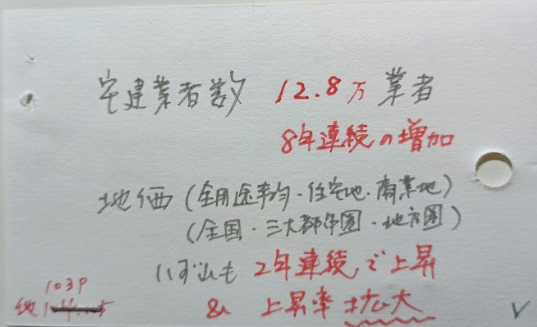 宅建業者数 12.8万業者
8年連続の増加
地価(全用途平均・住宅地・商業地)
(全国・三大都市圏・地方圏)
いずれも 2年連続で上昇
& 上昇率拡大
1039